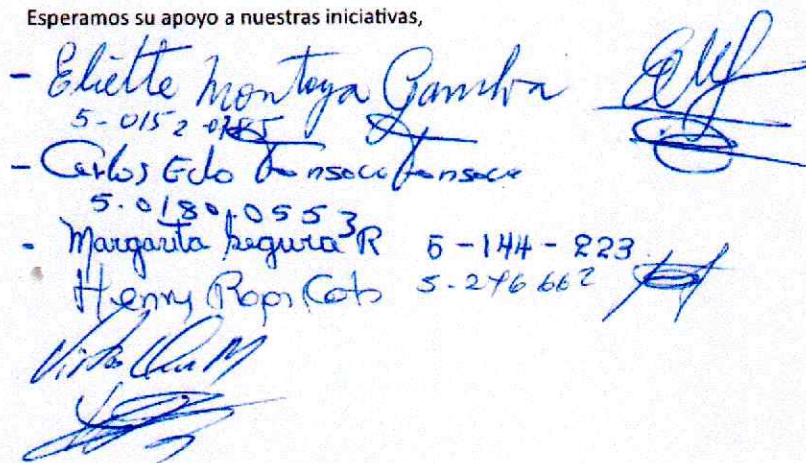 Esperamos su apoyo a nuestras iniciativas,
- Eliette Montoya Gamboa
5-0152-0785
- Carlos Edo Fonseca Fonseca
5.0180.0553
- Margarita Segura R 5-144-223
Henry 5-276 662